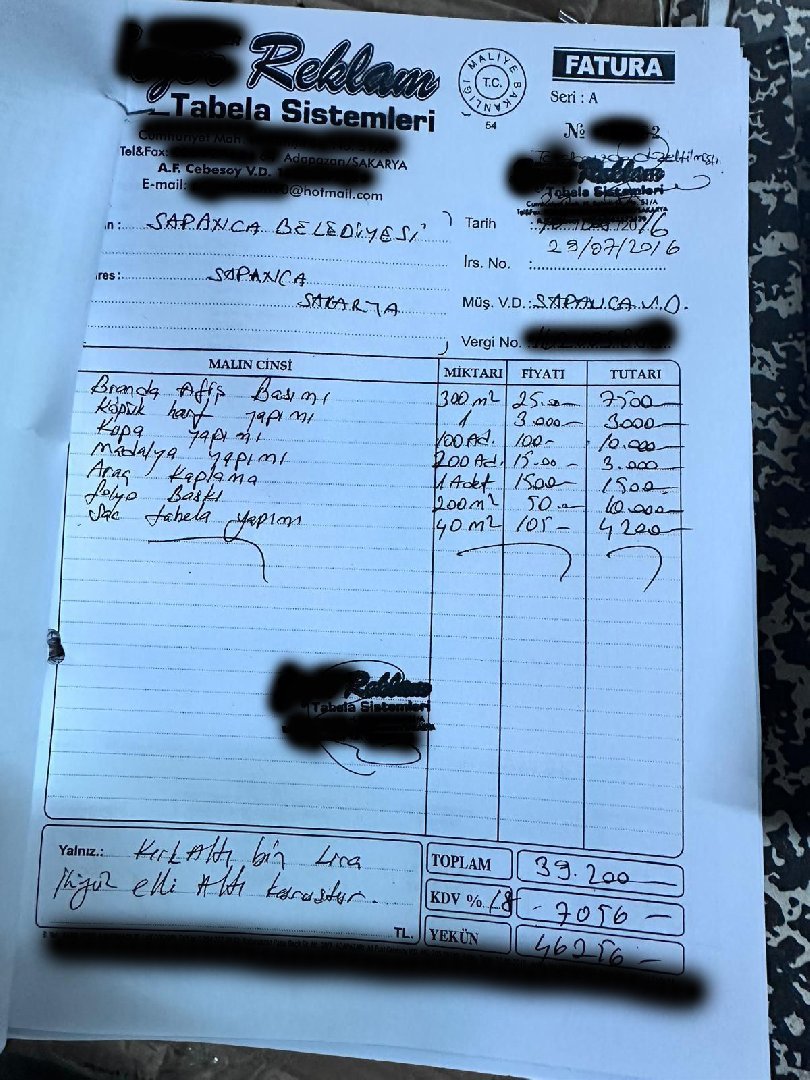 Reklam
Tabela Sistemleri
MALİYE BAKANLIĞI
T.C.
54
FATURA
Seri : A
№ 2
Cumhuriyet Mah.
Tel&Fax: Adapazarı/SAKARYA
A.F. Cebesoy V.D. 1
E-mail: 0@hotmail.com
düzeltilmiştir
Reklam
Tabela Sistemleri
ın : SAPANCA BELEDİYESİ
Tarih :
29/07/2016
İrs. No. :
res : SAPANCA
SAKARYA
Müş. V.D.: SAPANCA V.D.
Vergi No.
MALIN CİNSİ MİKTARI FİYATI TUTARI
Branda Afiş Basımı 300 m² 25.00- 7500-
Köpük harf yapımı 1 3.000- 3000-
Kupa yapımı 100 Ad. 100- 10.000-
Madalya yapımı 200 Ad. 15.00- 3.000-
Araç Kaplama 1 Adet 1500- 1500-
folyo Baskı 200 m² 50.00 10.000-
Sac tabela yapımı 40 m² 105- 4200-
Reklam
Tabela Sistemleri
Yalnız.: Kırk Altı bin Lira
İkiyüz elli Altı kuruştur.
TL.
TOPLAM 39.200-
KDV % 18 -7056-
YEKÜN 46256-